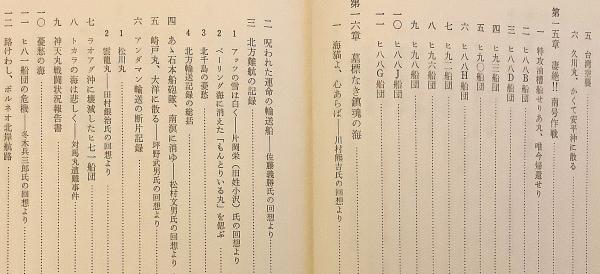 五 台湾空襲
六 久川丸、かくて安平沖に散る
第一五章 凄絶!! 南号作戦
一 特攻油槽船せりあ丸、唯今帰還せり
二 ヒ八八A船団
三 ヒ八八D船団
四 ヒ九三船団
五 ヒ九〇船団
六 ヒ八八H船団
七 ヒ九二船団
八 ヒ九六船団
九 ヒ九八船団
一〇 ヒ八八J船団
一一 ヒ八八G船団
第一六章 墓標なき鎮魂の海
一 海猫よ、心あらば――川村熊吉氏の回想より
二 呪われた運命の輸送船――佐藤義勝氏の回想より
三 北方離航の記録
1 アッツの雪は白く――片岡栄(旧姓小沢)氏の回想より
2 ベーリング海に消えた「もんとりいる丸」を偲ぶ
3 北千島の憂愁
4 北方輸送記録の総括
四 あゝ石本船砲隊、南溟に消ゆ――松村文男氏の回想より
五 崎戸丸、大洋に散る――坪野武男氏の回想より
六 アンダマン輸送の断片記録
1 松川丸
2 雲龍丸 田村銀治氏の回想より
七 ラオアグ沖に壊滅したヒ七一船団
八 トカラの海は悲しく――対馬丸遭難事件
九 神天丸戦闘状況報告書
一〇 憂愁の海
一一 ヒ八一船団の危機――冬木兵三郎氏の回想より
一二 路けわし、ボルネオ北岸航路